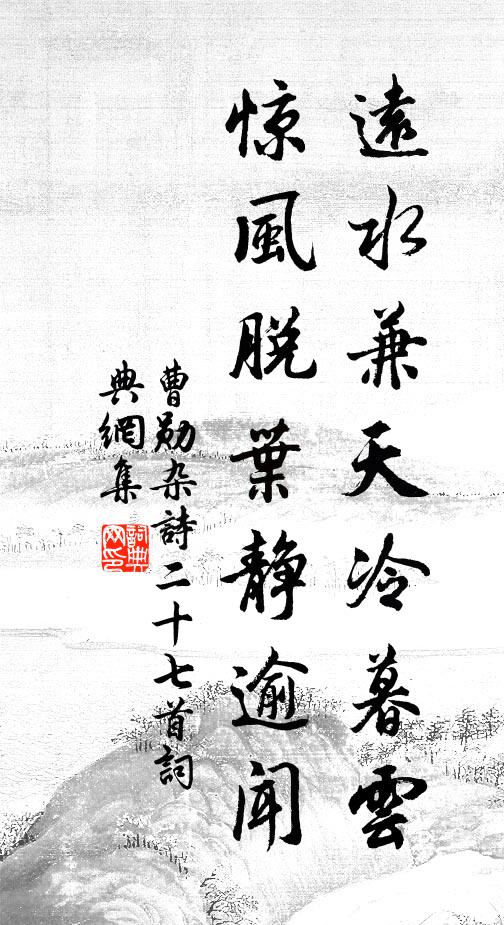 遠水兼天冷暮雲
惊風脱葉静逾闻
曹勋杂詩二十七首詞
典網集
詞典网印